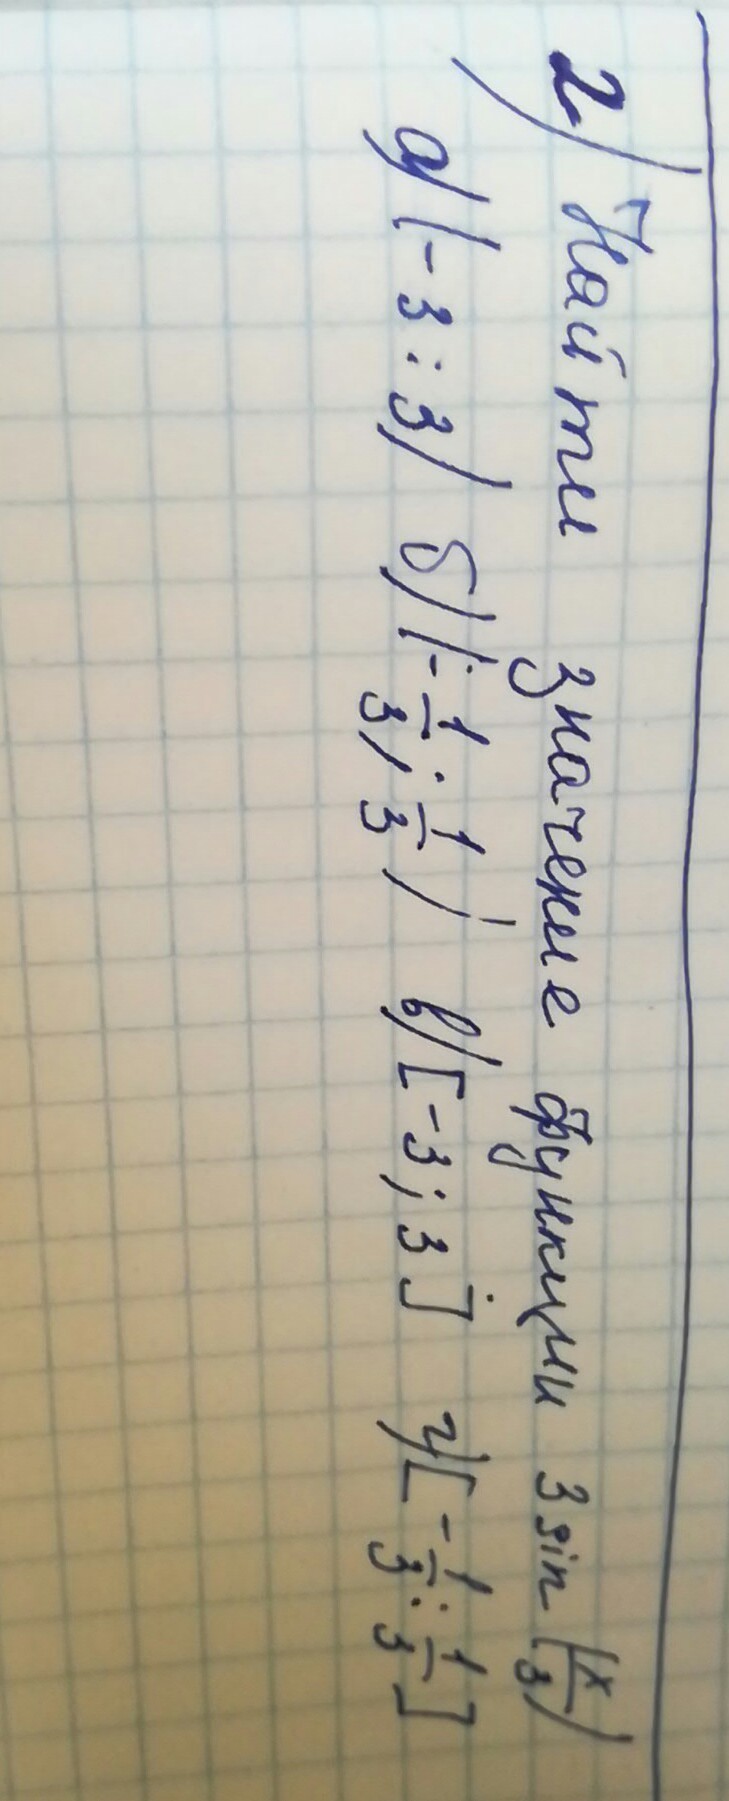 2) Найти значение функции 3 sin (x/3)
а) (-3; 3) б) (-1/3; 1/3) в) [-3; 3] г) [-1/3; 1/3]